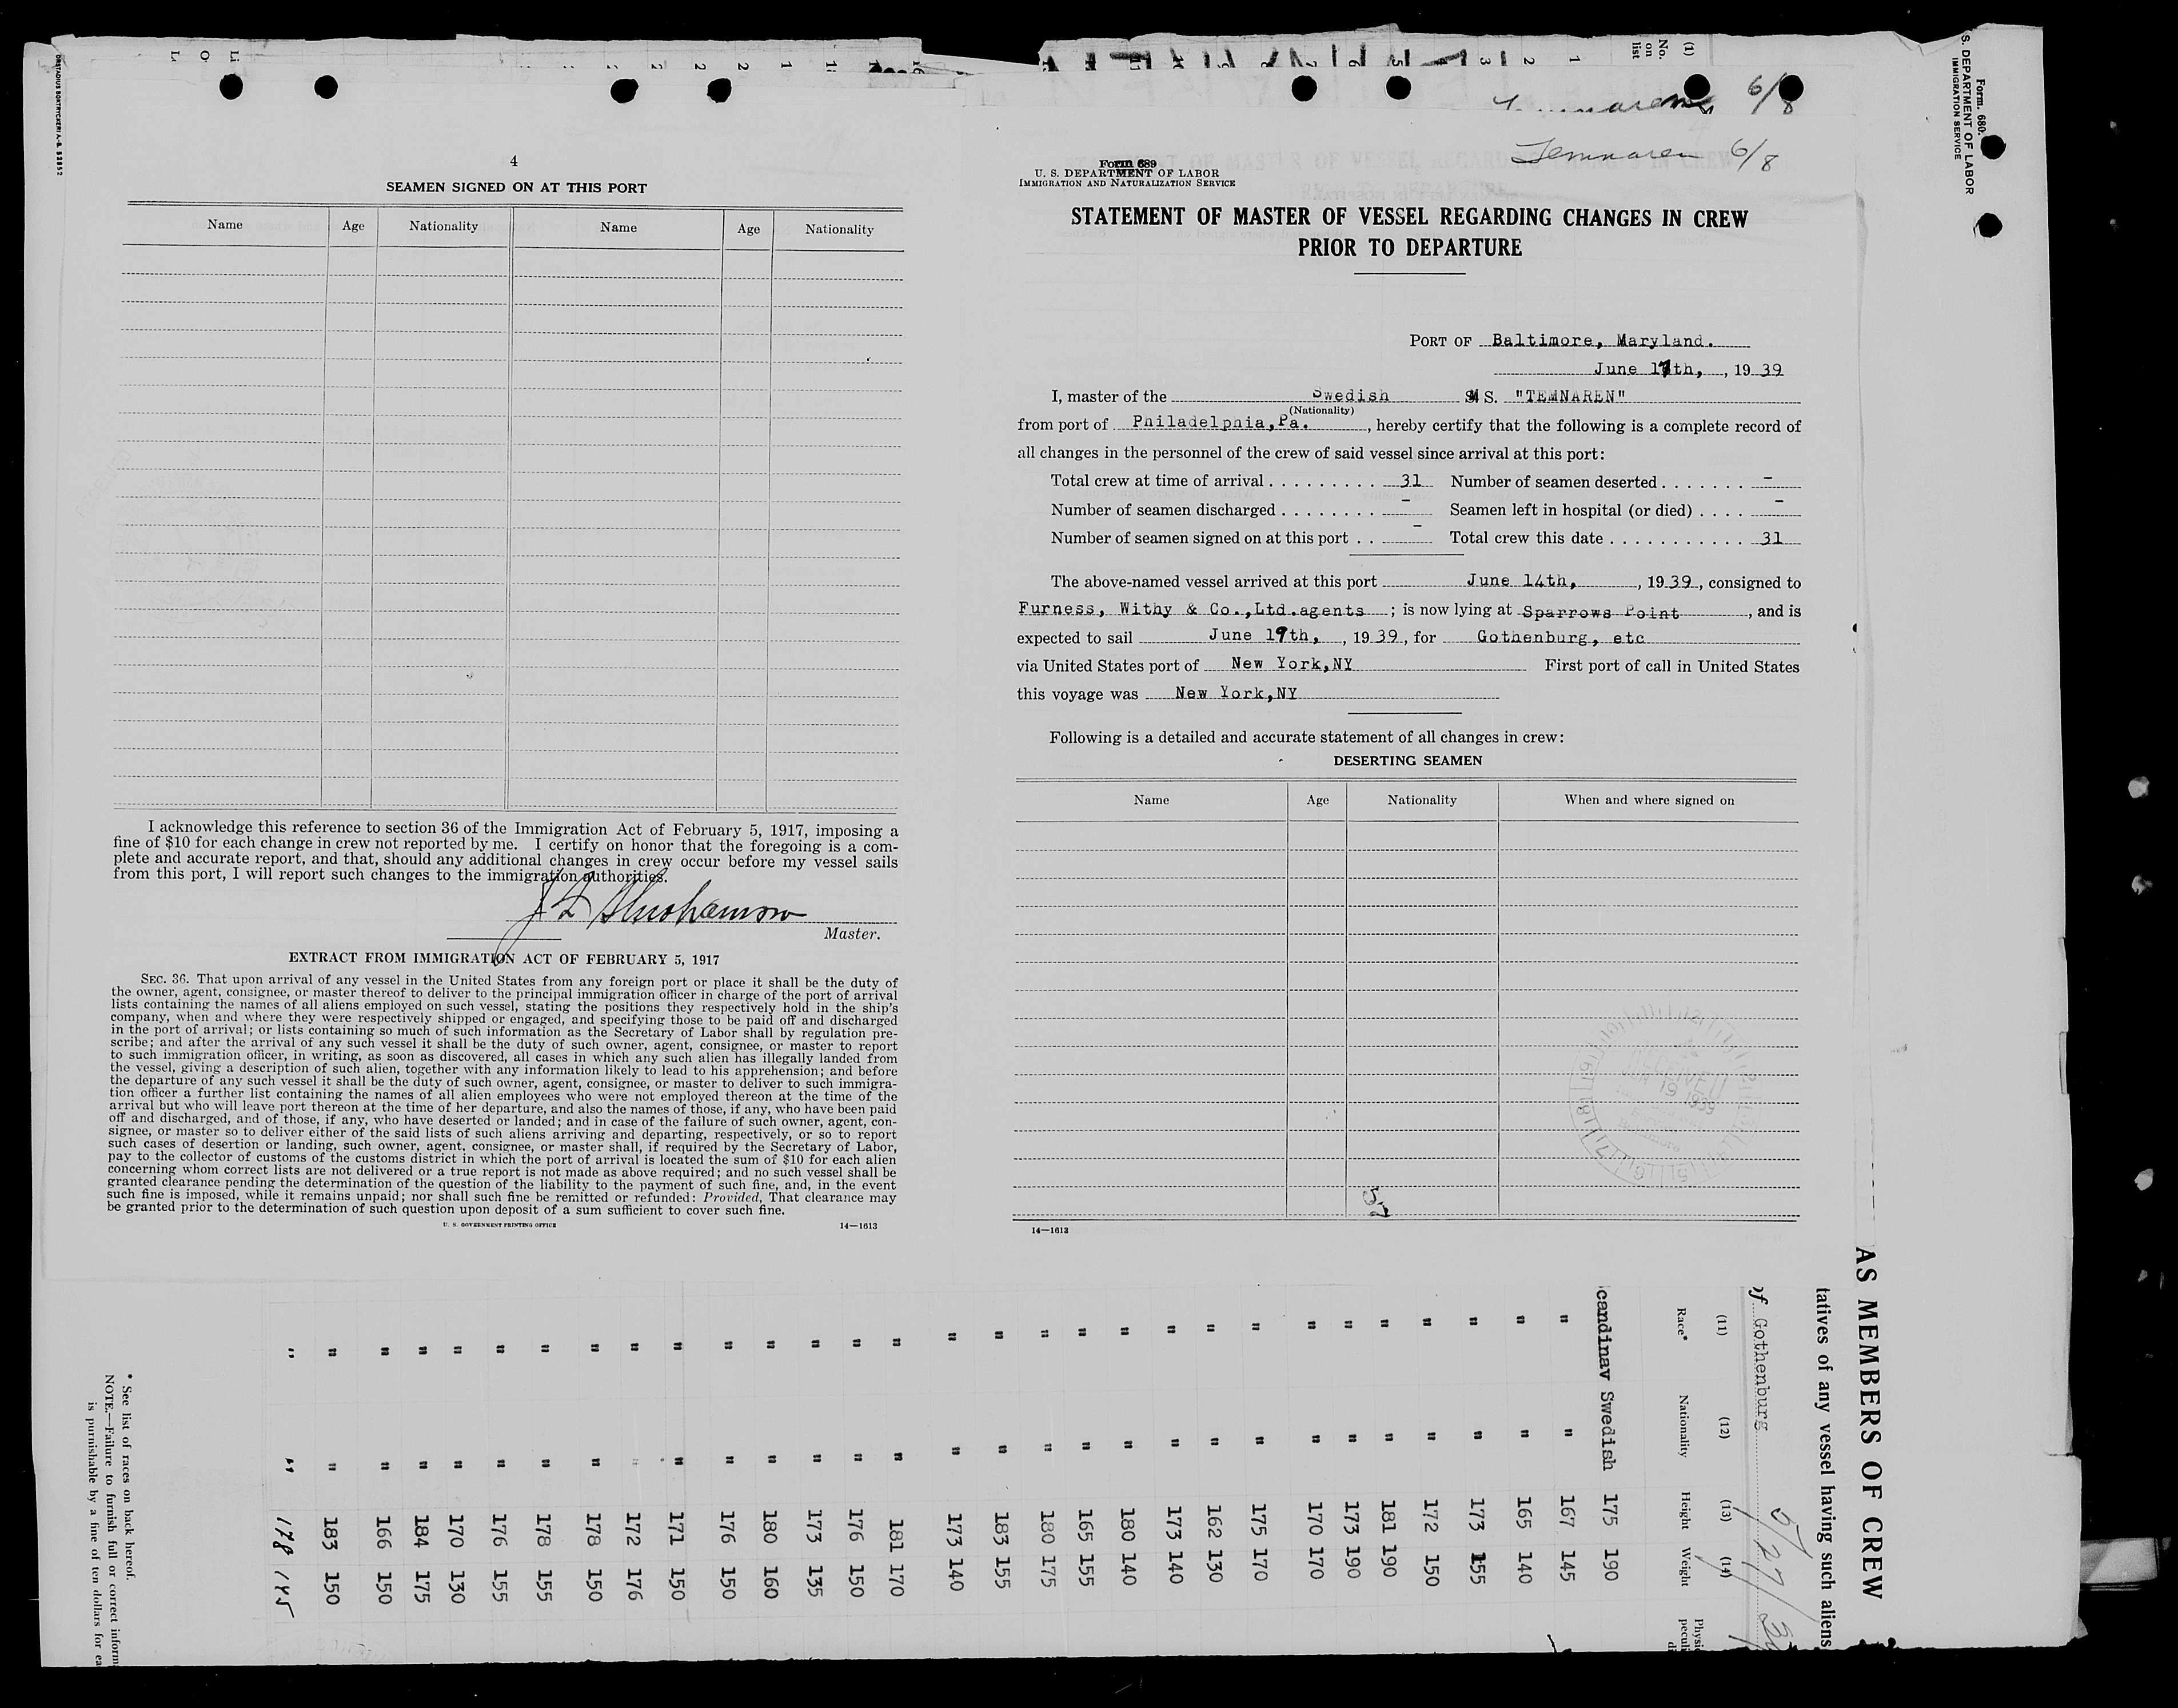 4
SEAMEN SIGNED ON AT THIS PORT
Name Age Nationality Name Age Nationality
I acknowledge this reference to section 36 of the Immigration Act of February 5, 1917, imposing a
fine of $10 for each change in crew not reported by me. I certify on honor that the foregoing is a com-
plete and accurate report, and that, should any additional changes in crew occur before my vessel sails
from this port, I will report such changes to the immigration authorities.
Master.
EXTRACT FROM IMMIGRATION ACT OF FEBRUARY 5, 1917
SEC. 36. That upon arrival of any vessel in the United States from any foreign port or place it shall be the duty of
the owner, agent, consignee, or master thereof to deliver to the principal immigration officer in charge of the port of arrival
lists containing the names of all aliens employed on such vessel, stating the positions they respectively hold in the ship's
company, when and where they were respectively shipped or engaged, and specifying those to be paid off and discharged
in the port of arrival; or lists containing so much of such information as the Secretary of Labor shall by regulation pre-
scribe; and after the arrival of any such vessel it shall be the duty of such owner, agent, consignee, or master to report
to such immigration officer, in writing, as soon as discovered, all cases in which any such alien has illegally landed from
the vessel, giving a description of such alien, together with any information likely to lead to his apprehension; and before
the departure of any such vessel it shall be the duty of such owner, agent, consignee, or master to deliver to such immigra-
tion officer a further list containing the names of all alien employees who were not employed thereon at the time of the
arrival but who will leave port thereon at the time of her departure, and also the names of those, if any, who have been paid
off and discharged, and of those, if any, who have deserted or landed; and in case of the failure of such owner, agent, con-
signee, or master so to deliver either of the said lists of such aliens arriving and departing, respectively, or so to report
such cases of desertion or landing, such owner, agent, consignee, or master shall, if required by the Secretary of Labor,
pay to the collector of customs of the customs district in which the port of arrival is located the sum of $10 for each alien
concerning whom correct lists are not delivered or a true report is not made as above required; and no such vessel shall be
granted clearance pending the determination of the question of the liability to the payment of such fine, and, in the event
such fine is imposed, while it remains unpaid; nor shall such fine be remitted or refunded: Provided, That clearance may
be granted prior to the determination of such question upon deposit of a sum sufficient to cover such fine.
U. S. GOVERNMENT PRINTING OFFICE 14—1613
Temnaren 6/8
Form 689
U. S. DEPARTMENT OF LABOR
IMMIGRATION AND NATURALIZATION SERVICE
STATEMENT OF MASTER OF VESSEL REGARDING CHANGES IN CREW
PRIOR TO DEPARTURE
PORT OF Baltimore, Maryland.
June 17th, , 1939
I, master of the Swedish MS. "TEMNAREN"
(Nationality)
from port of Philadelphia,Pa. , hereby certify that the following is a complete record of
all changes in the personnel of the crew of said vessel since arrival at this port:
Total crew at time of arrival . . . . . . . . . 31 Number of seamen deserted . . . . . . . -
Number of seamen discharged . . . . . . . . - Seamen left in hospital (or died) . . . . -
Number of seamen signed on at this port . . - Total crew this date . . . . . . . . . . . 31
The above-named vessel arrived at this port June 14th, , 1939, consigned to
Furness, Withy & Co.,Ltd.agents ; is now lying at Sparrows Point , and is
expected to sail June 19th, , 1939, for Gothenburg, etc
via United States port of New York,NY First port of call in United States
this voyage was New York,NY
Following is a detailed and accurate statement of all changes in crew:
DESERTING SEAMEN
Name Age Nationality When and where signed on
RECEIVED
JUN 19 1939
14—1613
(1)
No. on list
1
2
3
Form. 680.
S. DEPARTMENT OF LABOR
IMMIGRATION SERVICE
AS MEMBERS OF CREW
tatives of any vessel having such aliens
of Gothenburg
(11) (12) (13) (14)
Race* Nationality Height Weight
candinav Swedish 175 190
" " 167 145
" " 165 140
" " 173 155
" " 172 150
" " 181 190
" " 173 190
" " 170 170
" " 175 170
" " 162 130
" " 173 140
" " 180 140
" " 165 155
" " 180 175
" " 183 155
" " 173 140
" " 181 170
" " 176 150
" " 173 135
" " 180 160
" " 176 150
" " 171 150
" " 172 176
" " 178 150
" " 178 155
" " 176 155
" " 170 130
" " 184 175
" " 166 150
" " 183 150
" " 178 145
* See list of races on back hereof.
NOTE.—Failure to furnish full or correct inform
is punishable by a fine of ten dollars for ea